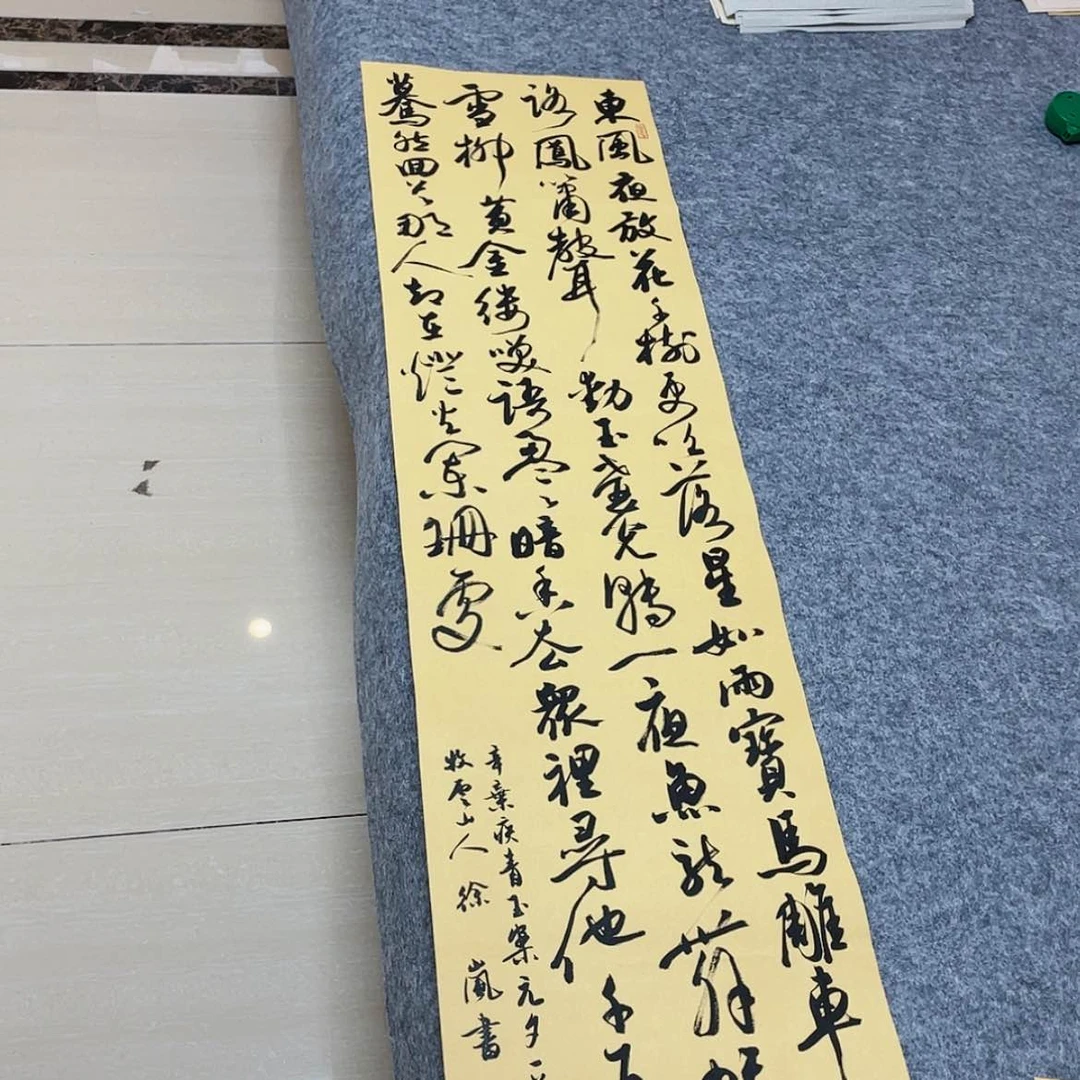 東風夜放花千樹更吹落星如雨寶馬雕車
路鳳簫聲動玉壺光轉一夜魚龍舞
雪柳黃金縷笑語盈々暗香去眾裡尋他千
驀然回首那人却在燈火闌珊處
辛棄疾青玉案元夕一
牧雲山人徐嵐書